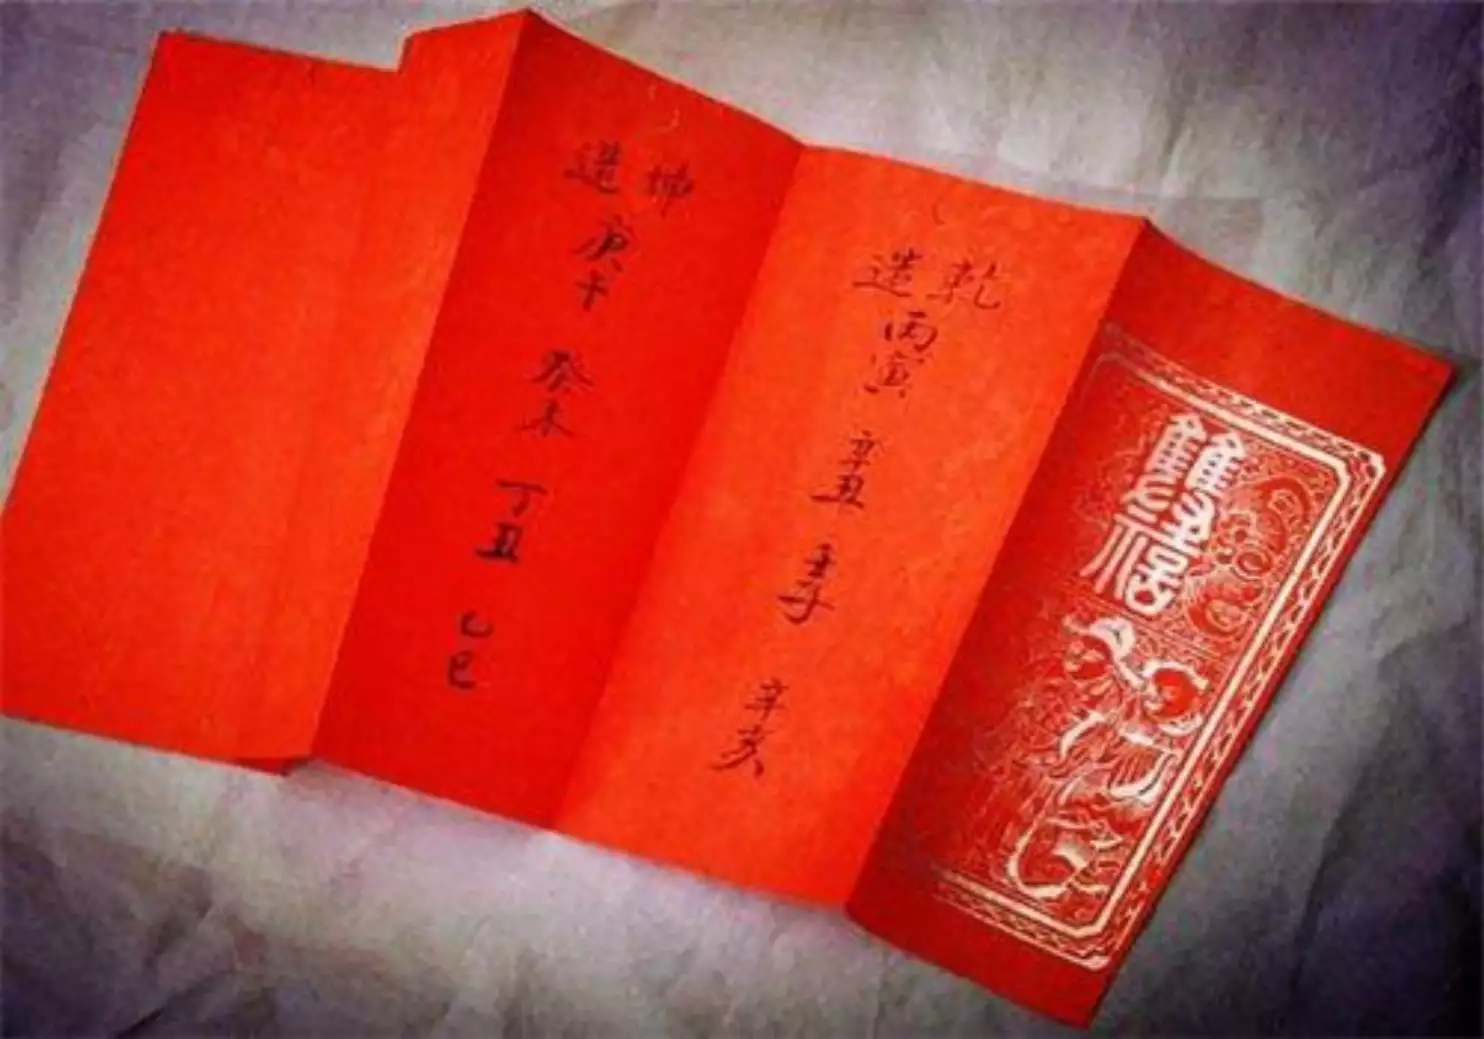 乾造
丙寅 辛丑 壬子 辛亥
坤造
庚午 癸未 丁丑 乙巳